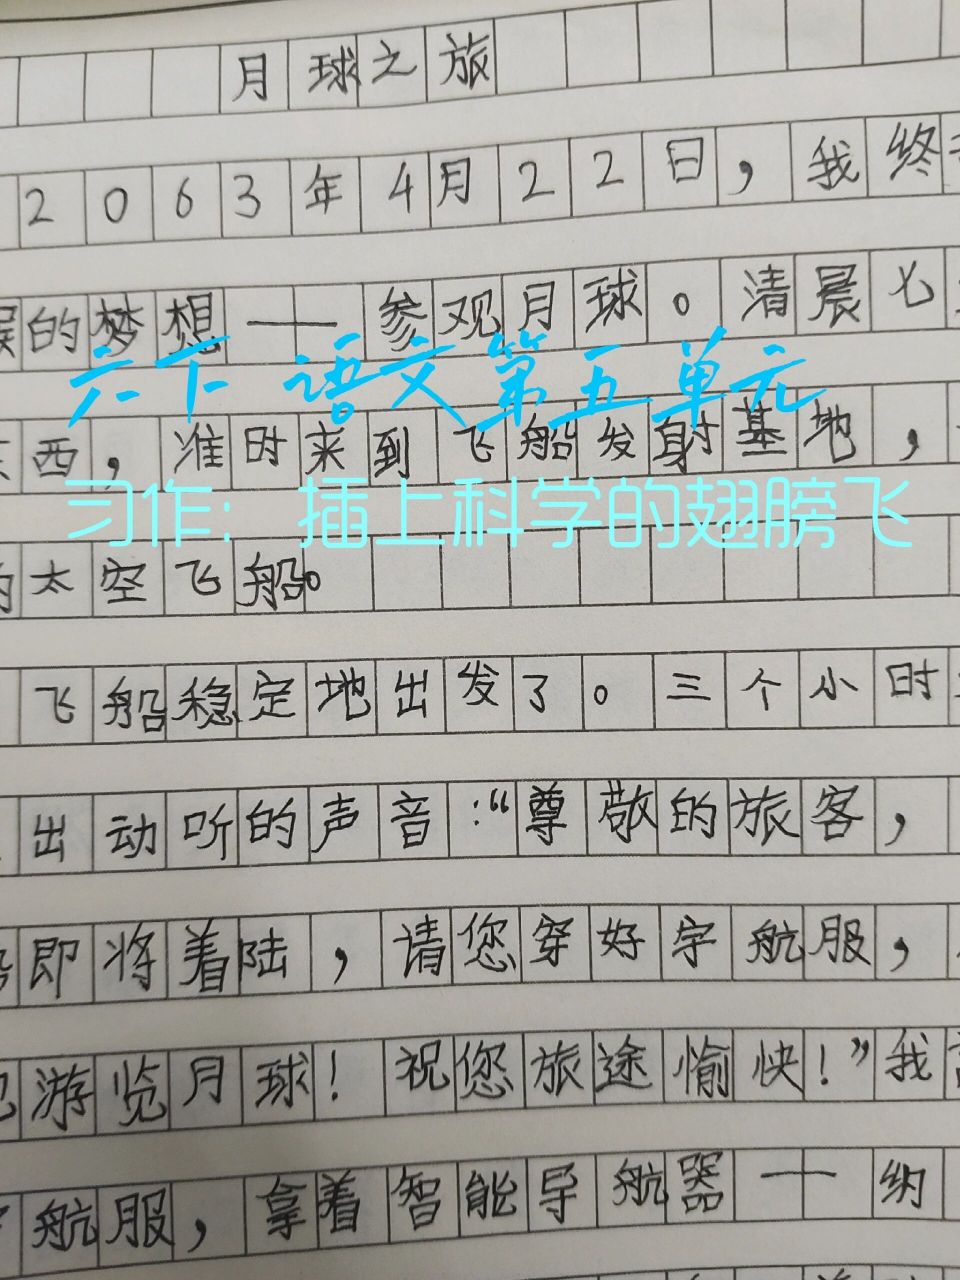 月球之旅
2063年4月22日，我终
的梦想——参观月球。清晨七
六下 语文第五单元
西，准时来到飞船发射基地，
习作：插上科学的翅膀飞
太空飞船。
飞船稳定地出发了。三个小时
出动听的声音：“尊敬的旅客，
即将着陆，请您穿好宇航服，
游览月球！祝您旅途愉快！”我
航服，拿着智能导航器——纳